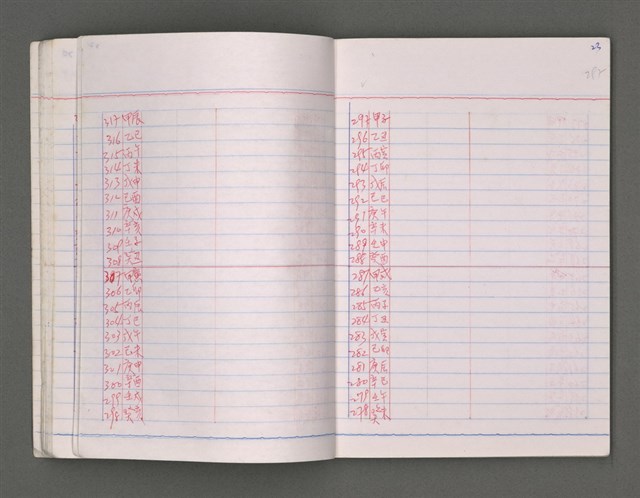 317 甲辰
316 乙巳
315 丙午
314 丁未
313 戊申
312 己酉
311 庚戌
310 辛亥
309 壬子
308 癸丑
307 甲寅
306 乙卯
305 丙辰
304 丁巳
303 戊午
302 己未
301 庚申
300 辛酉
299 壬戌
298 癸亥
23
297 甲子
296 乙丑
295 丙寅
294 丁卯
293 戊辰
292 己巳
291 庚午
290 辛未
289 壬申
288 癸酉
287 甲戌
286 乙亥
285 丙子
284 丁丑
283 戊寅
282 己卯
281 庚辰
280 辛巳
279 壬午
278 癸未